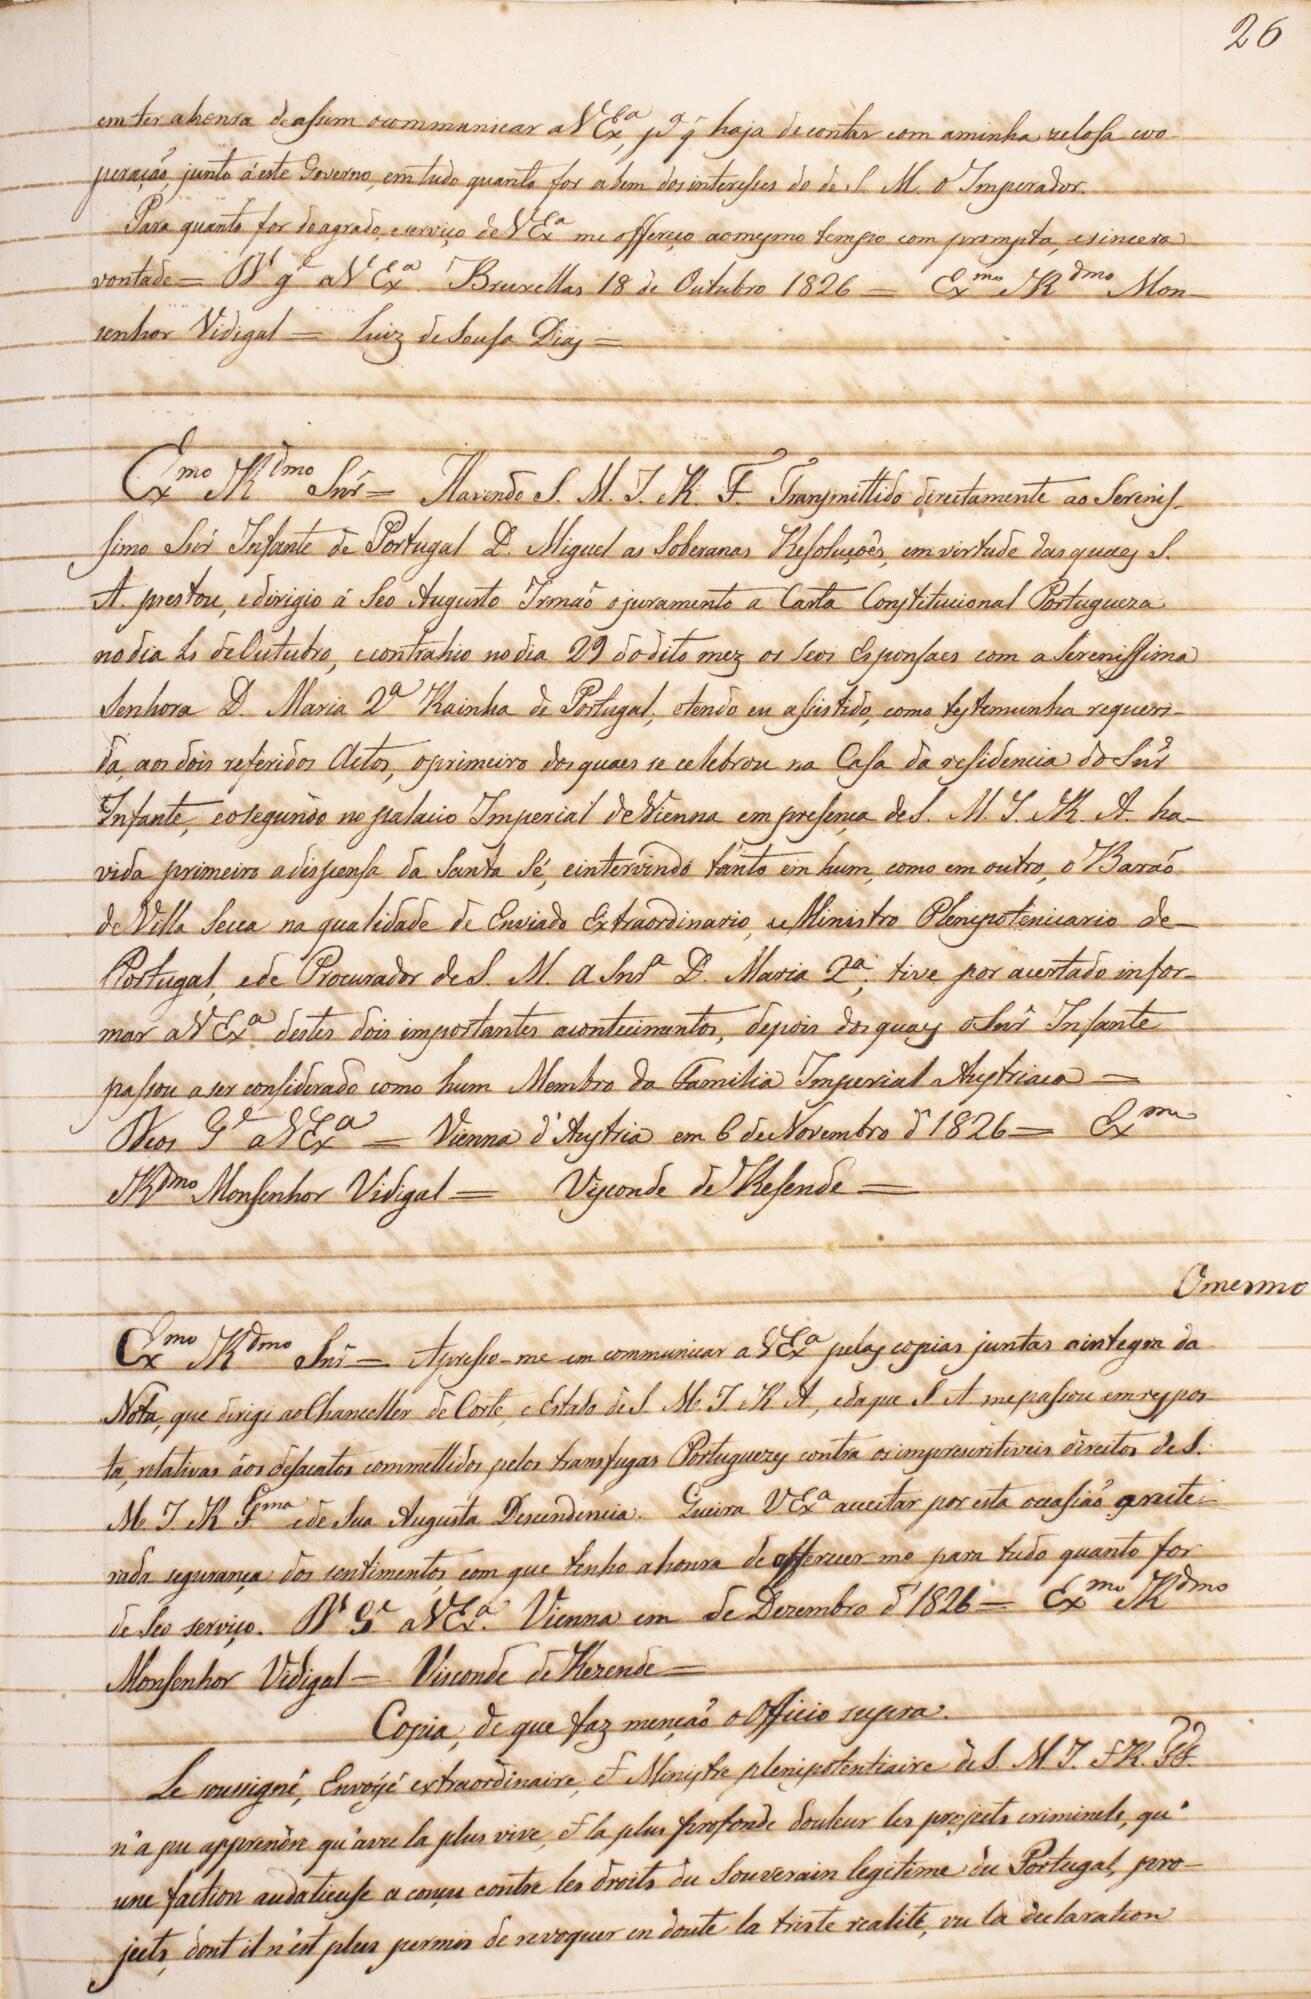 26
em ter a honra de assim o communicar a V Exª, pª q̃ haja de contar com a minha zelosa coo-
peração, junto á este Governo, em tudo quanto for a bem dos interesses do de S. M. o Imperador.
Para quanto for de agrado, e serviço de V Exª me offereço ao mesmo tempo com prompta, e sincera
vontade = Dˢ gᵉ a V Exª. Bruxellas 18 de Outubro 1826 = Exᵐᵒ e Rᵈᵐᵒ Mon-
senhor Vidigal = Luiz de Sousa Dias =
Exᵐᵒ e Rᵈᵐᵒ Snr̃ = Havendo S. M. I. e R. F. Transmittido directamente ao Serenis-
simo Snr̃ Infante de Portugal D. Miguel as Soberanas Resoluções, em virtude das quaes S.
A. prestou, e dirigio á Seo Augusto Irmão o juramento a Carta Constitucional Portugueza
no dia 4 de Outubro, e contrahio no dia 29 do dito mez os seos Esponsaes com a Serenissima
Senhora D. Maria 2ª Rainha de Portugal, e tendo eu assistido, como testemunha requeri-
da, aos dois referidos Actos, o primeiro dos quaes se celebrou na Casa da residencia do Snr̃
Infante, e o segundo no palacio Imperial de Vienna em presença de S. M. I. e R. A. ha-
vida primeiro a dispensa da Santa Sé, e intervindo tanto em hum, como em outro, o Barão
de Villa Secca na qualidade de Enviado Extraordinario, e Ministro Plenipotenicario de
Portugal, e de Procurador de S. M. a Snrª D. Maria 2ª; tive por acertado infor-
mar a V Exª destes dois importantes acontecimentos, depois dos quaes o Snr̃ Infante
passou a ser considerado como hum Membro da Familia Imperial Austriaca =
Deos Gᵉ a V Exª = Vienna d'Austria em 6 de Novembro d'1826 = Exᵐᵒ
e Rᵈᵐᵒ Monsenhor Vidigal = Visconde de Resende =
O mesmo
Exᵐᵒ e Rᵈᵐᵒ Snr̃ = Apresso-me em communicar a V Exª pelas copias juntas a integra da
Nota, que dirigi ao Chanceller de Corte, e Estado de S. M. I. R. A, e da que S. A. me passou em respos-
ta, relativas áos desacatos commettidos pelos transfugas Portuguezes contra os imprescritiveis direitos de S.
M. I. e R Fᵐᵃ e de Sua Augusta Descendencia. Queira V Exª acceitar por esta occasião a reite-
rada segurança dos sentimentos, com que tenho a honra de offerecer-me para tudo quanto for
de Seo serviço. Dˢ Gᵉ a V Exª. Vienna em de Dezembro d'1826 = Exᵐᵒ e Rᵈᵐᵒ
Monsenhor Vidigal = Visconde de Rezende =
Copia, de que faz menção o Officio supra.
Le soussigné, Envoyé extraordinaire, et Ministre plenipotentiaire de S. M. I. et R. F.
n'a pu apprendre qu'avec la plus vive, et la plus profonde douleur les projects criminels, qu'
une faction audatieuse a conçu contre les droits du Souverain legitime du Portugal, pro-
jects, dont il n'est plus permis de revoquer en doute la triste realité, vu la declaration